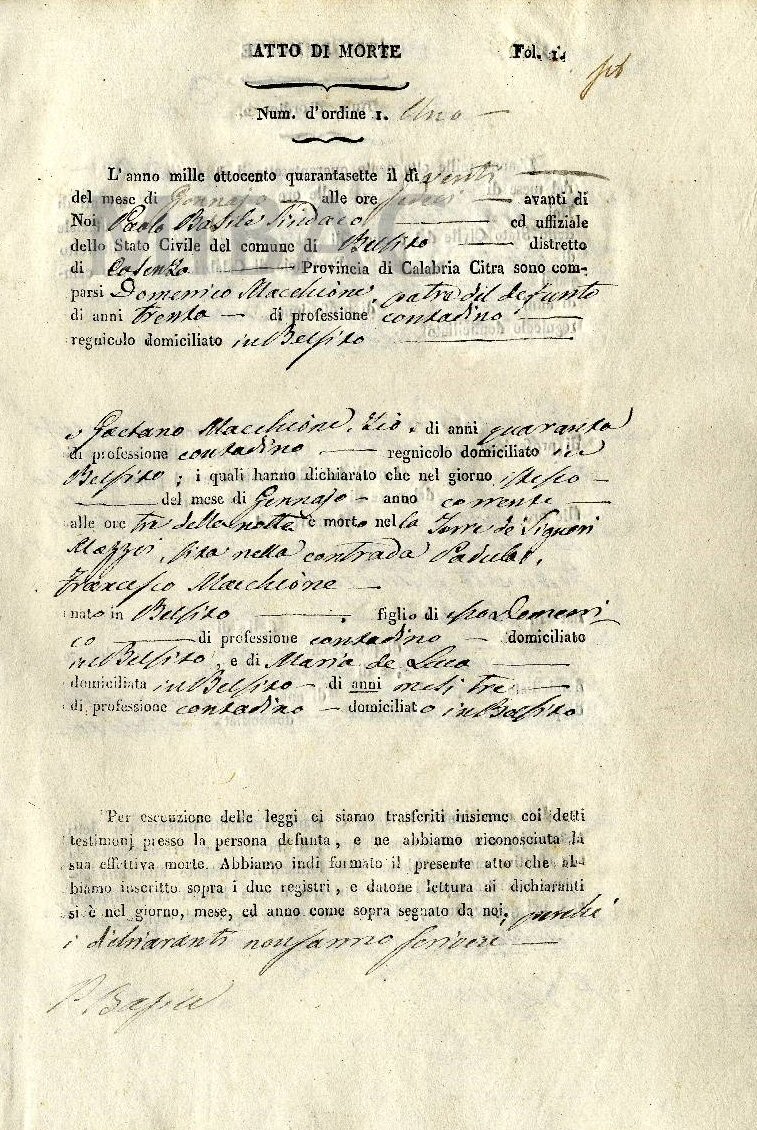 ATTO DI MORTE Fol. 1.
Num. d'ordine 1. Uno
L'anno mille ottocento quarantasette il dì venti
del mese di Gennajo alle ore avanti di
Noi Paolo Basile Sindaco ed uffiziale
dello Stato Civile del comune di Belsito distretto
di Cosenza Provincia di Calabria Citra sono com-
parsi Domenico Macchione, padre del defunto
di anni trenta di professione contadino
regnicolo domiciliato in Belsito
e Gaetano Macchione, Zio, di anni quaranta
di professione contadino regnicolo domiciliato in
Belsito ; i quali hanno dichiarato che nel giorno istesso
del mese di Gennajo anno corrente
alle ore tre della notte è morto nella Torre de' Signori
Mazzei, sita nella contrada
Francesco Macchione
nato in Belsito figlio di Domeni
co di professione contadino domiciliato
in Belsito, e di Maria de Luca
domiciliata in Belsito di anni mesi tre
di professione contadino domiciliato in Belsito
Per esecuzione delle leggi ci siamo trasferiti insieme coi detti
testimonj presso la persona defunta, e ne abbiamo riconosciuta la
sua effettiva morte. Abbiamo indi formato il presente atto che ab-
biamo inscritto sopra i due registri, e datone lettura ai dichiaranti
si è nel giorno, mese, ed anno come sopra segnato da noi, perchè
i dichiaranti non sanno scrivere
P. Basile